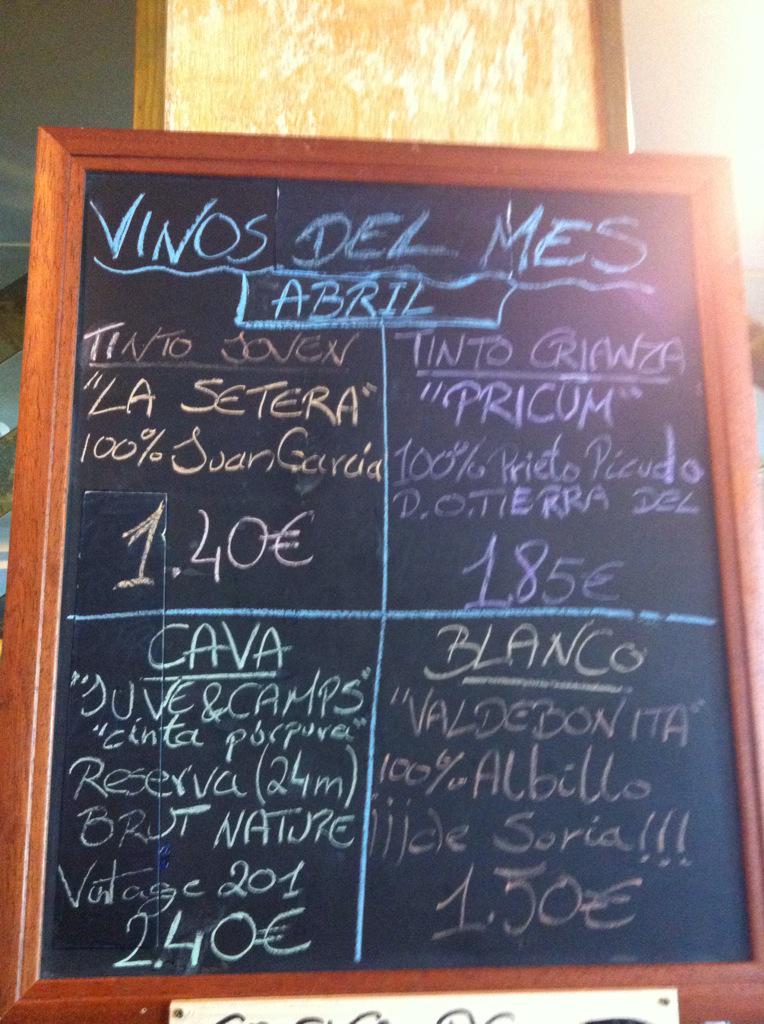 VINOS DEL MES
ABRIL
TINTO JOVEN
"LA SETERA"
100% Juan García
1.40€
TINTO CRIANZA
"PRICUM"
100% Prieto Picudo
D.O.TIERRA DEL
1.85€
CAVA
"JUVE&CAMPS"
"cinta púrpura"
Reserva (24m)
BRUT NATURE
Vintage 201
2.40€
BLANCO
"VALDEBONITA"
100% Albillo
¡¡¡de Soria!!!
1.50€